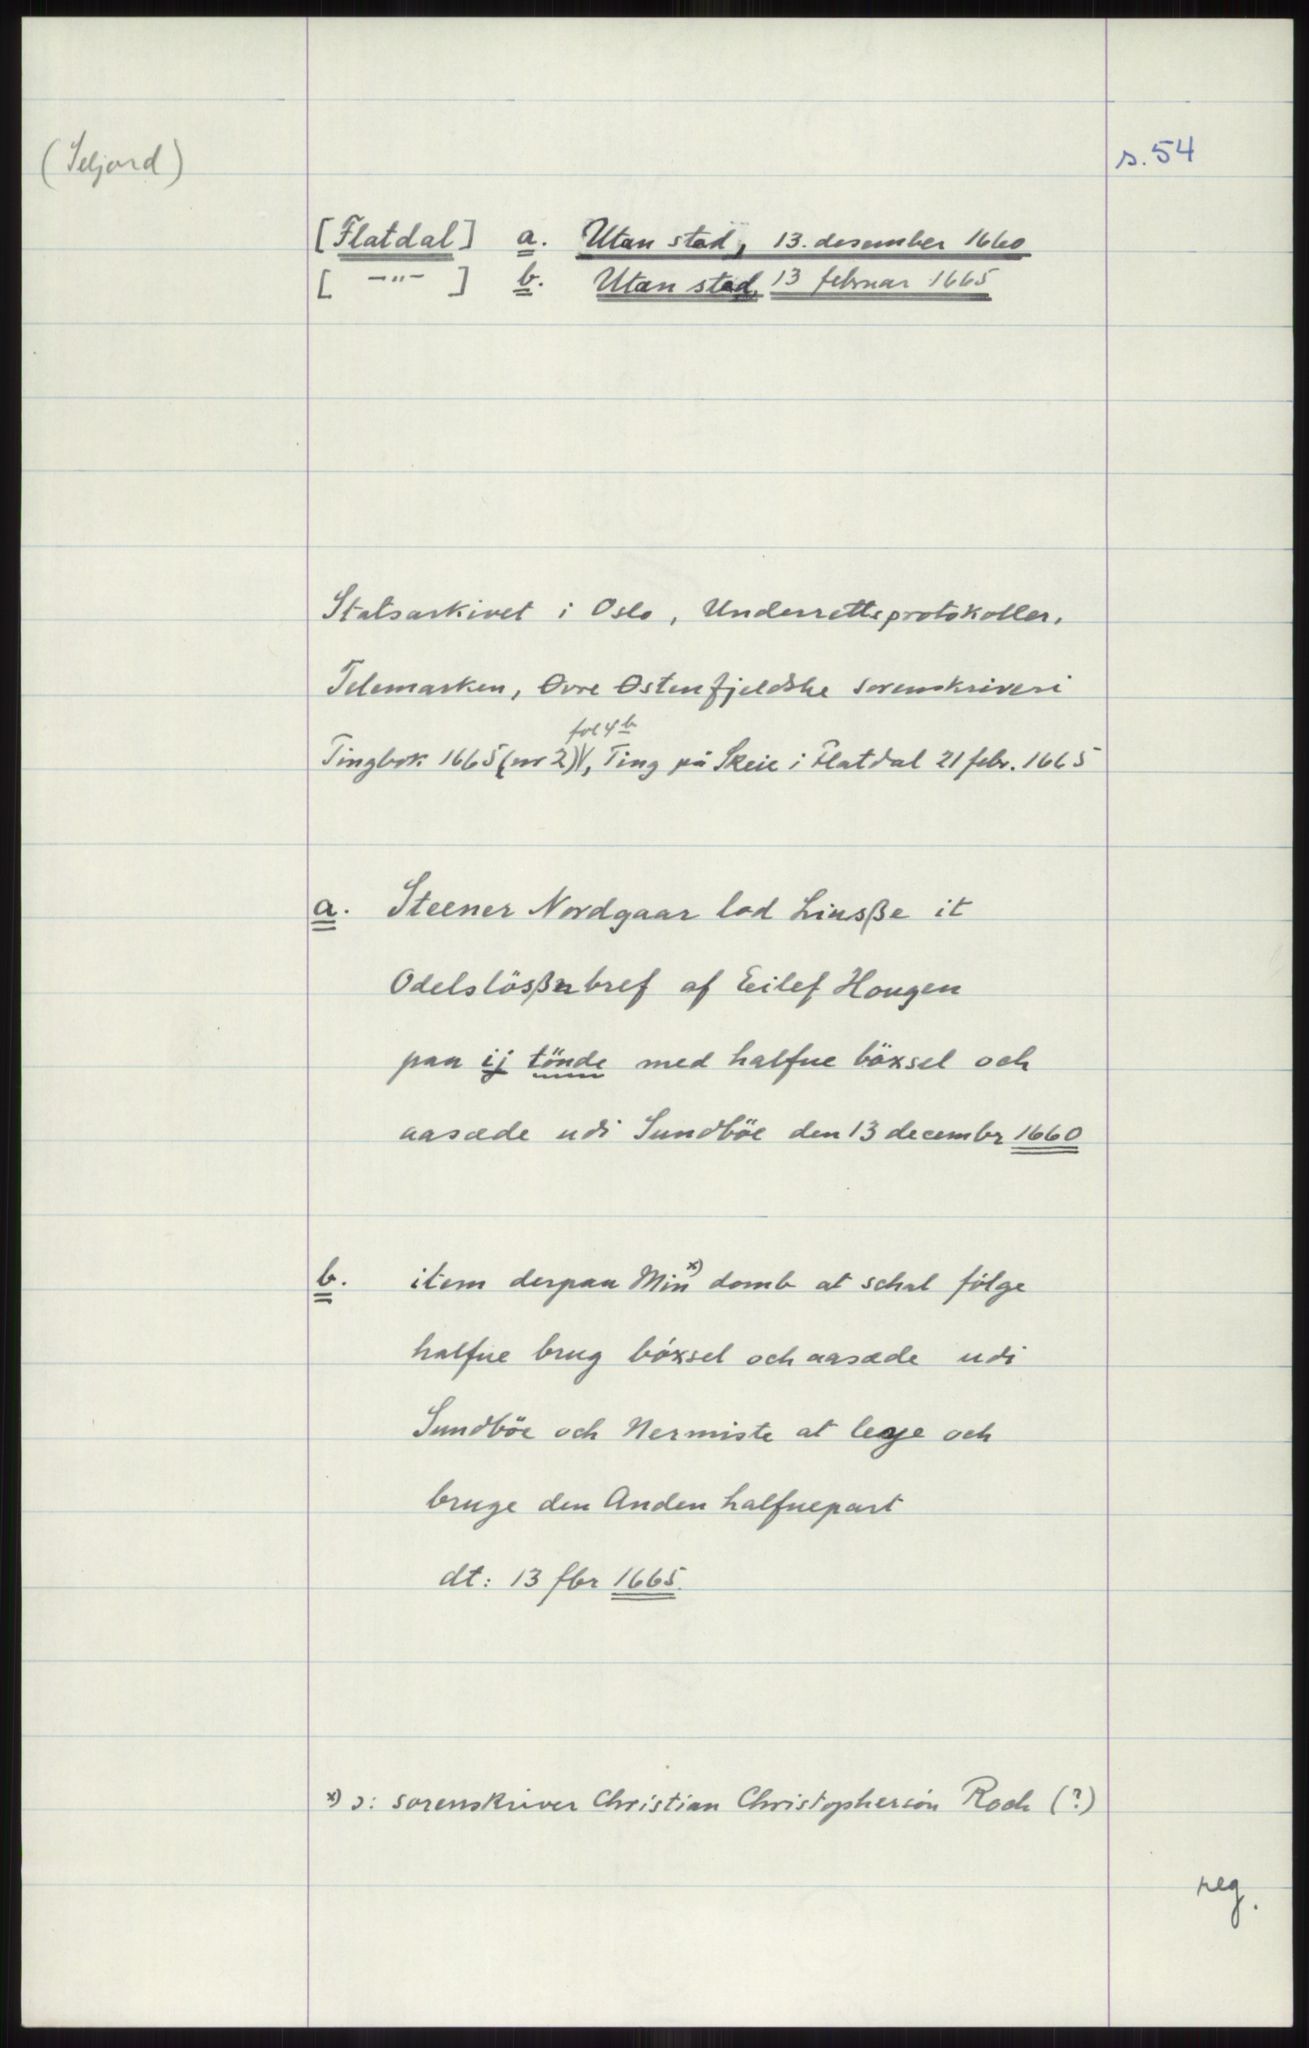 (Seljord)
s. 54
[Flatdal] a. Utan stad, 13. desember 1660
[ —"— ] b. Utan stad, 13 februar 1665
Statsarkivet i Oslo, Underrettsprotokoller,
Telemarken, Øvre Østenfjeldske sorenskriveri
fol 4 b
Tingbok 1665 (nr 2), Ting på Skeie i Flatdal 21 febr. 1665
a. Steener Nordgaar lod Liusße it
Odelslösßn bref af Eilef Hougen
paa ij tönde med halfue böxsel och
aasæde udi Sundböe den 13 decembr 1660
b. item derpaa Min x) domb at schal følge
halfue brug bóxsel och aasæde udi
Sundböe och Nermiste at leye och
bruge den Anden halfuepart
dt: 13 fbr 1665.
x) ɔ: sorenskriver Christian Christophersón Roch (?)
reg.